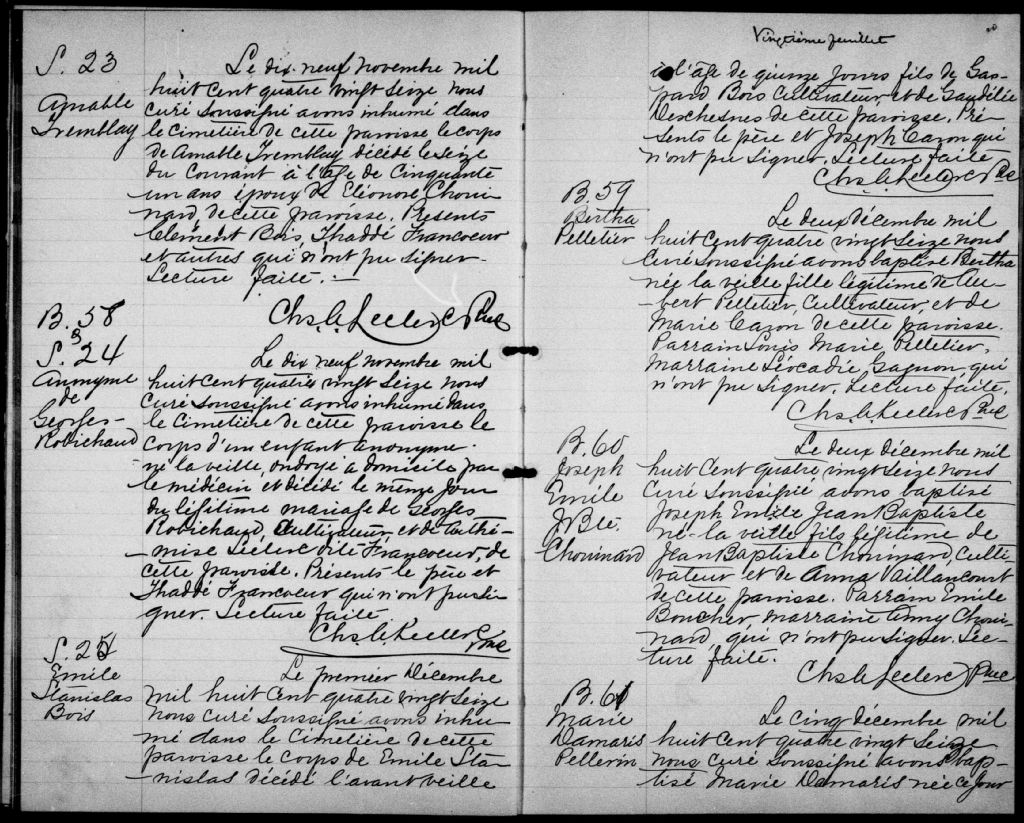 S. 23
Amable
Tremblay
Le dix neuf novembre mil
huit cent quatre vingt seize nous
curé soussigné avons inhumé dans
le cimetière de cette paroisse le corps
de Amable Tremblay décédé le seize
du courant à l'âge de cinquante
un ans époux de Eléonore Choui-
nard, de cette paroisse. Présents
Clément Bois, Thaddé Francoeur
et autres qui n'ont pu signer.
Lecture faite. —
Chs. A. Leclerc Ptre
B. 58
&
S. 24
Anonyme
de
Georges
Robichaud
Le dix neuf novembre mil
huit cent quatre vingt seize nous
curé soussigné avons inhumé dans
le cimetière de cette paroisse le
corps d'un enfant anonyme
né la veille, ondoyé à domicile par
le médecin et décédé le même jour
du légitime mariage de Georges
Robichaud, Cultivateur, et de Arthé-
mise Leclerc dite Francoeur, de
cette paroisse. Présents le père et
Thaddé Francoeur qui n'ont pu si-
gner. Lecture faite
Chs. A. Leclerc Ptre
S. 25
Emile
Stanislas
Bois
Le premier Décembre
mil huit cent quatre vingt seize
nous curé soussigné avons inhu-
mé dans le cimetière de cette
paroisse le corps de Emile Sta-
nislas décédé l'avant veille
Vingtième feuillet
à l'âge de quinze jours fils de Gas-
pard Bois cultivateur, et de Gaudélie
Deschesnes de cette paroisse. Pré-
sents le père et Joseph Cazon qui
n'ont pu signer, Lecture faite
Chs. A. Leclerc Ptre
B. 59
Bertha
Pelletier
Le deux décembre mil
huit cent quatre vingt seize nous
curé soussigné avons baptisé Bertha
née la veille fille légitime de Au-
bert Pelletier, Cultivateur, et de
Marie Cazon de cette paroisse.
Parrain Louis Marie Pelletier,
Marraine Léocadie Gagnon, qui
n'ont pu signer. Lecture faite.
Chs. A. Leclerc Ptre
B. 60
Joseph
Emile
J Bte.
Chouinard
Le deux décembre mil
huit cent quatre vingt seize nous
curé soussigné, avons baptisé
Joseph Emile Jean Baptiste
né la veille fils légitime de
Jean Baptiste Chouinard, culti-
vateur et de Anna Vaillancourt
de cette paroisse. Parrain Emile
Boucher, marraine Anny Choui-
nard, qui n'ont pu signer. Lec-
ture faite.
Chs. A. Leclerc Ptre
B. 61
Marie
Damaris
Pellerin
Le cinq décembre mil
huit cent quatre vingt seize
nous curé soussigné avons bap-
tisé Marie Damaris née ce jour